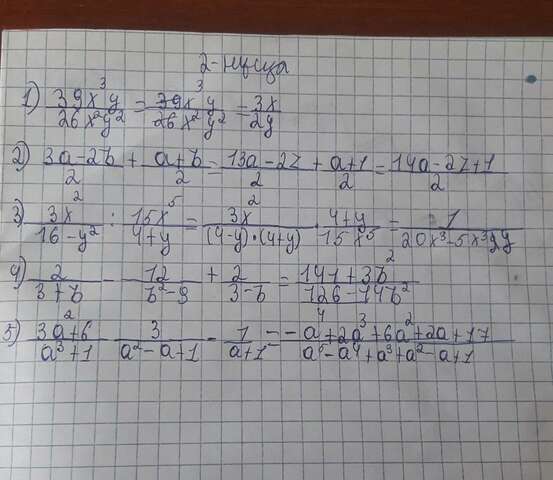 2-нұсқа
1) 39x³y/26x²y² = 39x³y/26x²y² = 3x/2y
2) 3a-2b/2 + a+b/2 = 13a-2z/2 + a+1/2 = 14a-2z+1/2
3) 3x²/16-y² : 15x⁵/4+y = 3x²/(4-y)·(4+y) · 4+y/15x⁵ = 1/20x³-5x³y
4) 2/3+b - 12/b²-9 + 2/3-b = 147+3b²/126-14b²
5) 3a²+6/a³+1 - 3/a²-a+1 - 1/a+1 = -a⁴+2a³+6a²+2a+17/a⁵-a⁴+a³+a²-a+1